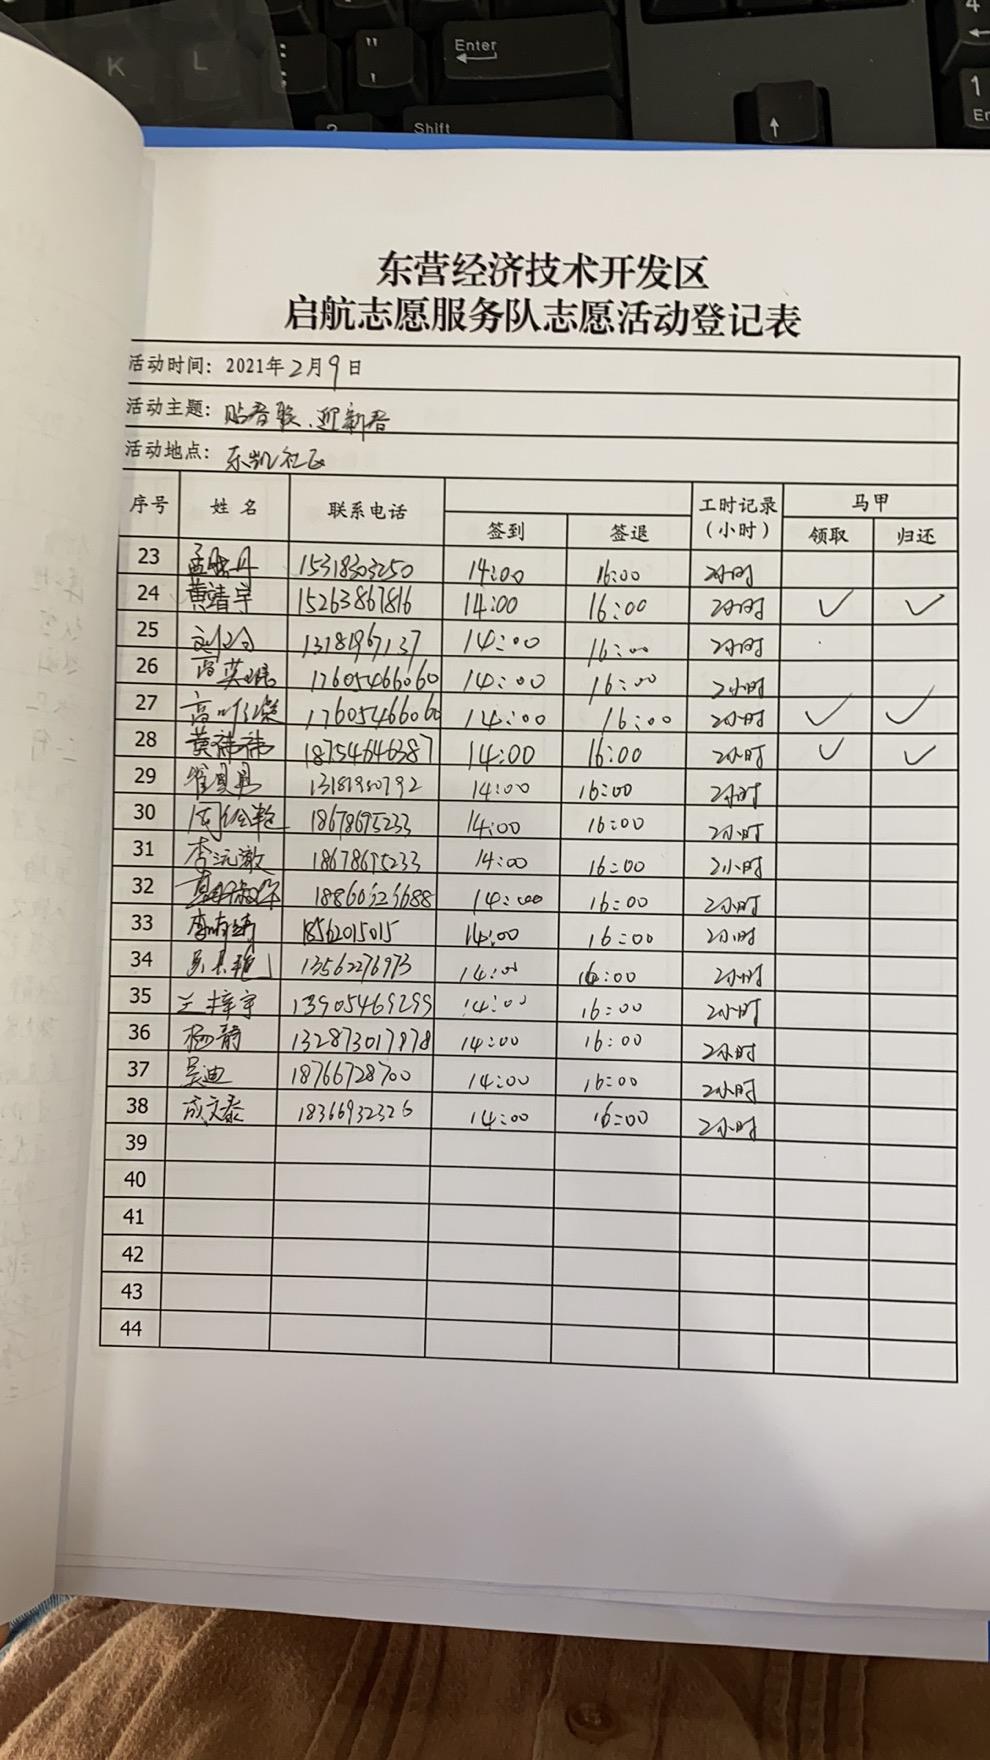 K
L
:
;
"
'
Enter
Shift
4
1
东营经济技术开发区
启航志愿服务队志愿活动登记表
活动时间：2021年2月9日
活动主题：贴春联、迎新春
活动地点：东凯社区
序号 姓名 联系电话 签到 签退 工时记录（小时） 马甲 领取 归还
23 15318303250 14:00 16:00 2小时
24 黄靖宇 15263867816 14:00 16:00 2小时 ✓ ✓
25 13181967137 14:00 16:00 2小时
26 17605466060 14:00 16:00 2小时
27 17605466060 14:00 16:00 2小时 ✓ ✓
28 黄祎祎 18754646387 14:00 16:00 2小时 ✓ ✓
29 14:00 16:00 2小时
30 18678695233 14:00 16:00 2小时
31 李沅澈 18678695233 14:00 16:00 2小时
32 14:00 16:00 2小时
33 18562015015 14:00 16:00 2小时
34 13562276973 14:00 16:00 2小时
35 王梓宇 13905469299 14:00 16:00 2小时
36 杨静 132873017878 14:00 16:00 2小时
37 吴迪 18766728700 14:00 16:00 2小时
38 成文泰 18366932326 14:00 16:00 2小时
39
40
41
42
43
44